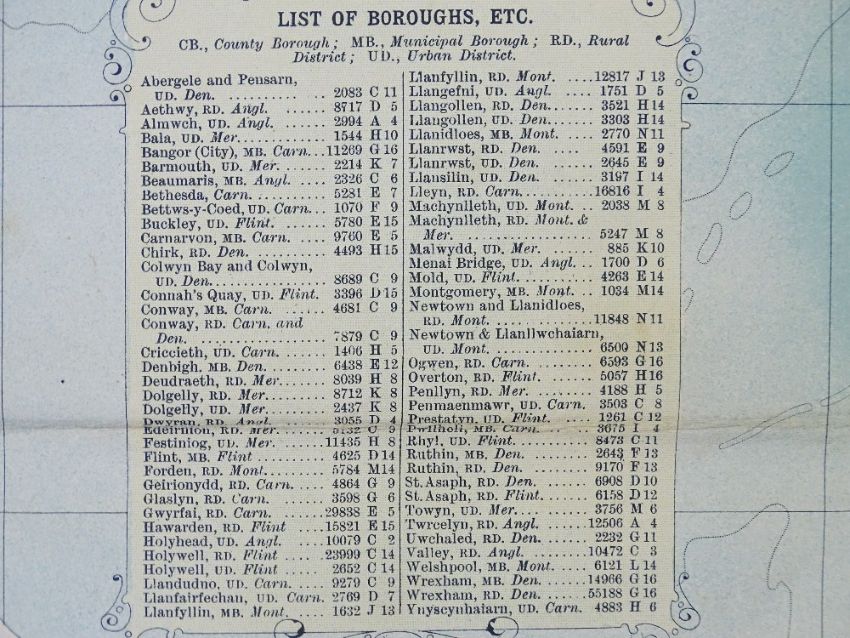 LIST OF BOROUGHS, ETC.
CB., County Borough; MB., Municipal Borough; RD., Rural
District; UD., Urban District.
Abergele and Pensarn,
UD. Den. ........... .. 2083 C 11
Aethwy, RD. Angl. ...... 8717 D 5
Almwch, UD. Angl. ...... 2994 A 4
Bala, UD. Mer. .......... 1544 H 10
Bangor (City), MB. Carn... 11269 G 16
Barmouth, UD. Mer. ..... 2214 K 7
Beaumaris, MB. Angl. .... 2326 C 6
Bethesda, Carn. ......... 5281 E 7
Bettws-y-Coed, UD. Carn... 1070 F 9
Buckley, UD. Flint. ...... 5780 E 15
Carnarvon, MB. Carn. .... 9760 E 5
Chirk, RD. Den. ......... 4493 H 15
Colwyn Bay and Colwyn,
UD. Den. ............. 8689 C 9
Connah's Quay, UD. Flint. 3396 D 15
Conway, MB. Carn. ...... 4681 C 9
Conway, RD. Carn. and
Den. ................. 7879 C 9
Criccieth, UD. Carn. ...... 1406 H 5
Denbigh. MB. Den. ....... 6438 E 12
Deudraeth, RD. Mer....... 8039 H 8
Dolgelly, RD. Mer......... 8712 K 8
Dolgelly, UD. Mer......... 2437 K 8
Dwyran, RD. Angl. ...... 3055 D 4
Edeirnion, RD. Mer. ..... 5132 C 9
Festiniog, UD. Mer. ...... 11435 H 8
Flint, MB. Flint ......... 4625 D 14
Forden, RD. Mont. ....... 5784 M 14
Geirionydd, RD. Carn. ... 4864 G 9
Glaslyn, RD. Carn. ...... 3598 G 6
Gwyrfai, RD. Carn. ...... 29838 E 5
Hawarden, RD. Flint .... 15821 E 15
Holyhead, UD. Angl. .... 10079 C 2
Holywell, RD. Flint ..... 23999 C 14
Holywell, UD. Flint ..... 2652 C 14
Llandudno, UD. Carn. .... 9279 C 9
Llanfairfechan, UD. Carn. 2769 D 7
Llanfyllin, MB. Mont. .... 1632 J 13
Llanfyllin, RD. Mont. .... 12817 J 13
Llangefni, UD. Angl. .... 1751 D 5
Llangollen, RD. Den. ..... 3521 H 14
Llangollen, UD. Den. ..... 3303 H 14
Llanidloes, MB. Mont. .... 2770 N 11
Llanrwst, RD. Den. ...... 4591 E 9
Llanrwst, UD. Den. ...... 2645 E 9
Llansilin, UD. Den. ...... 3197 I 14
Lleyn, RD. Carn. ......... 16816 I 4
Machynlleth, UD. Mont. .. 2038 M 8
Machynlleth, RD. Mont. &
Mer. ................. 5247 M 8
Malwydd, UD. Mer. ...... 885 K 10
Menai Bridge, UD. Angl. .. 1700 D 6
Mold, UD. Flint. ......... 4263 E 14
Montgomery, MB. Mont. .. 1034 M 14
Newtown and Llanidloes,
RD. Mont. ............. 11848 N 11
Newtown & Llanllwchaiarn,
UD. Mont. ............. 6509 N 13
Ogwen, RD. Carn. ....... 6593 G 16
Overton, RD. Flint. ...... 5057 H 16
Penllyn, RD. Mer. ....... 4188 H 5
Penmaenmawr, UD. Carn. 3503 C 8
Prestatyn, UD. Flint. .... 1261 C 12
Pwllheli, MB. Carn. ..... 3675 I 4
Rhyl, UD. Flint. ......... 8473 C 11
Ruthin, MB. Den. ........ 2643 F 13
Ruthin, RD. Den. ........ 9170 F 13
St. Asaph, RD. Den. ...... 6908 D 10
St. Asaph, RD. Flint. ..... 6158 D 12
Towyn, UD. Mer. ......... 3756 M 6
Twrcelyn, RD. Angl. ..... 12506 A 4
Uwchaled, RD. Den. ..... 2232 G 11
Valley, RD. Angl. ....... 10472 C 3
Welshpool, MB. Mont. ... 6121 L 14
Wrexham, MB. Den. ..... 14966 G 16
Wrexham, RD. Den. ..... 55188 G 16
Ynyscynhaiarn, UD. Carn. 4883 H 6